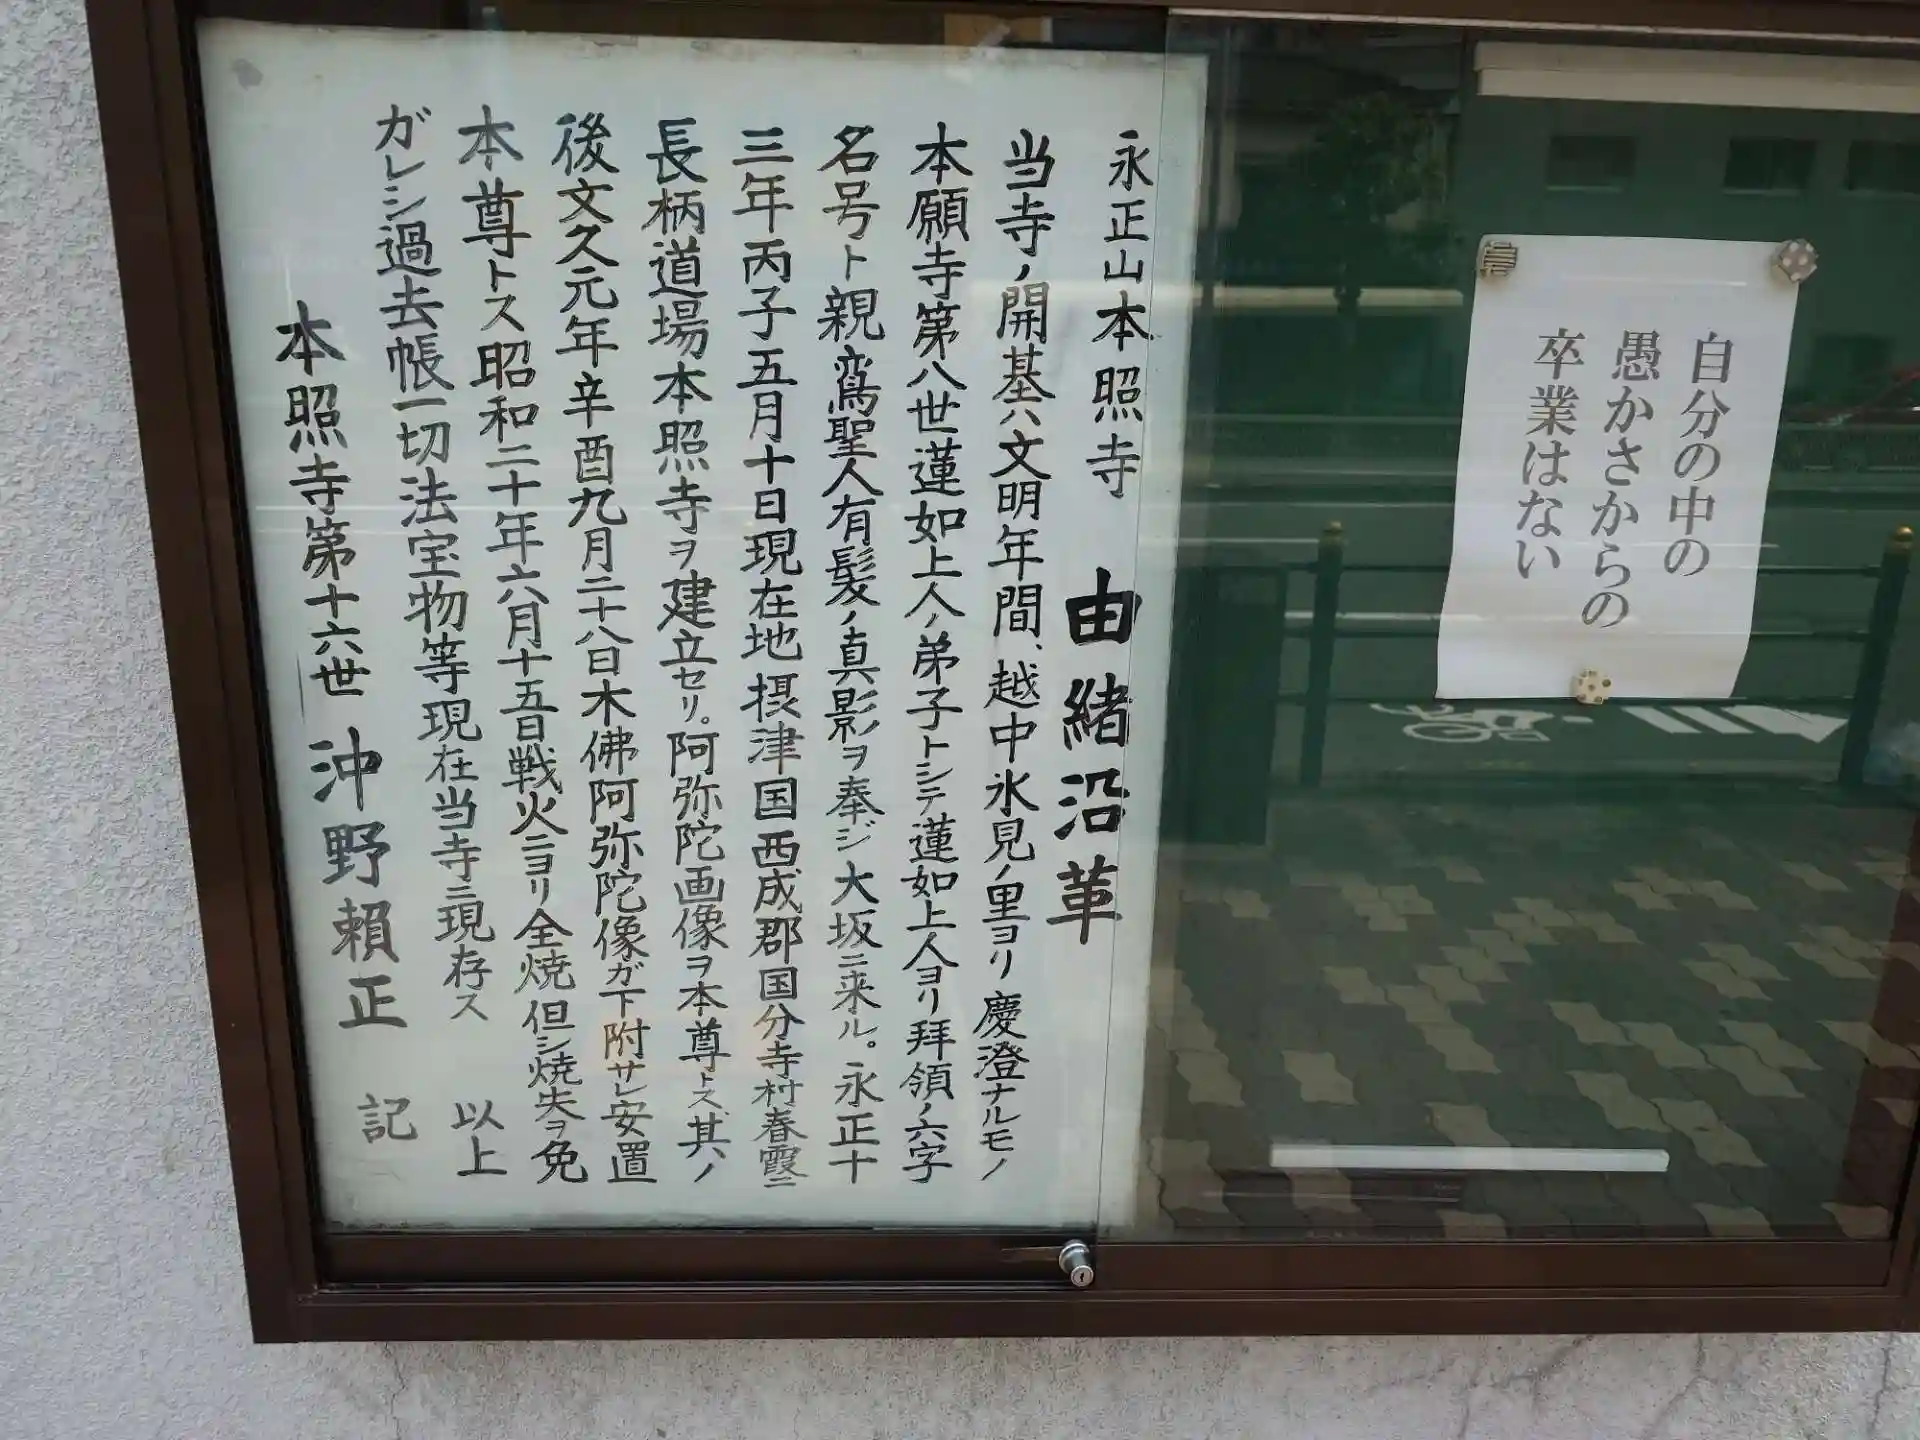 永正山本照寺 由緒沿革
当寺ノ開基ハ文明年間、越中氷見ノ里ヨリ慶澄ナルモノ
本願寺第八世蓮如上人ノ弟子トシテ蓮如上人ヨリ拝領ノ六字
名号ト親鸞聖人有髪ノ真影ヲ奉ジ大坂ニ来ル。永正十
三年丙子五月十日現在地摂津国西成郡国分寺村春霞ニ
長柄道場本照寺ヲ建立セリ。阿弥陀画像ヲ本尊トス、其ノ
後文久元年辛酉九月二十八日木佛阿弥陀像ガ下附サレ安置
本尊トス昭和二十年六月十五日戦火ニヨリ全焼但シ焼失ヲ免
ガレシ過去帳一切法宝物等現在当寺ニ現存ス 以上
本照寺第十六世 沖野頼正 記
自分の中の
愚かさからの
卒業はない